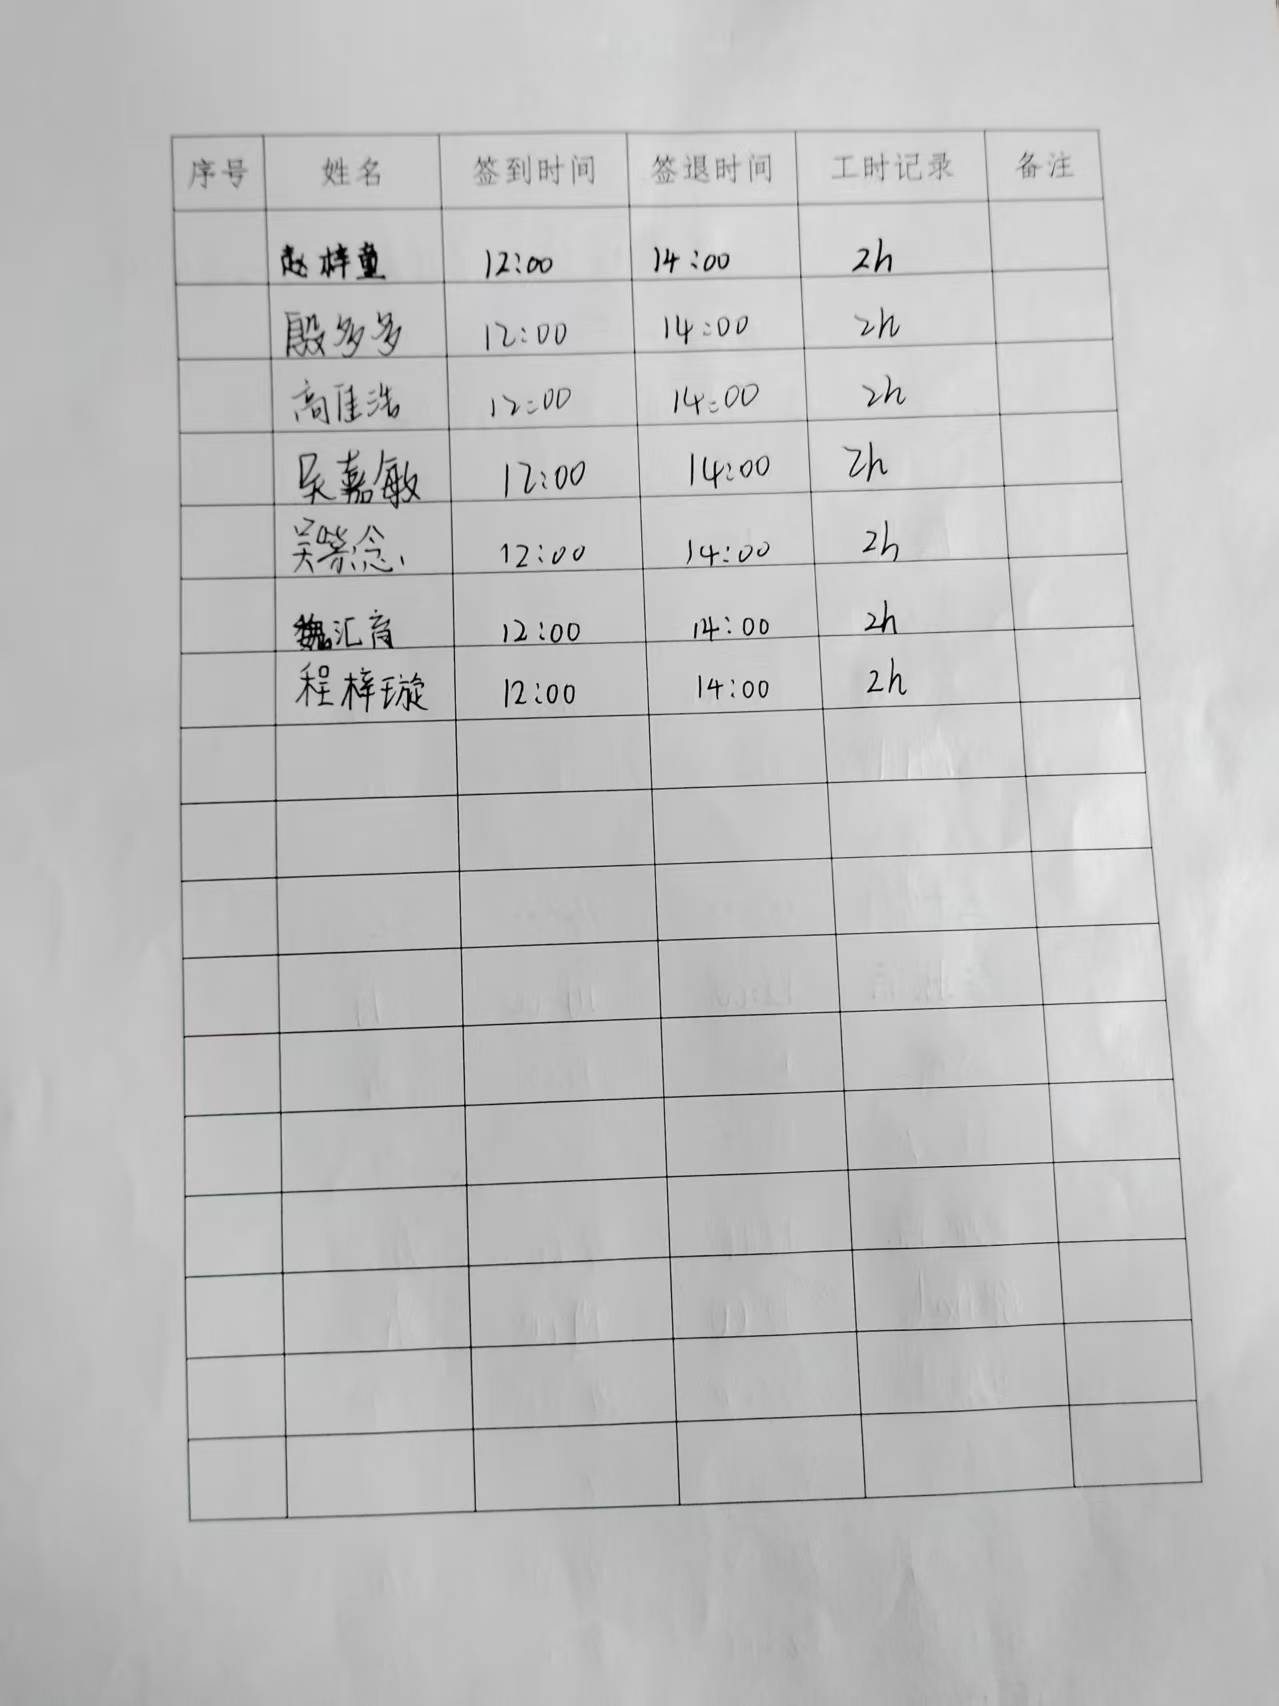 序号 姓名 签到时间 签退时间 工时记录 备注
赵梓童 12:00 14:00 2h
殷多多 12:00 14:00 2h
高佳浩 12:00 14:00 2h
吴嘉敏 12:00 14:00 2h
吴 念 12:00 14:00 2h
魏汇育 12:00 14:00 2h
程梓璇 12:00 14:00 2h